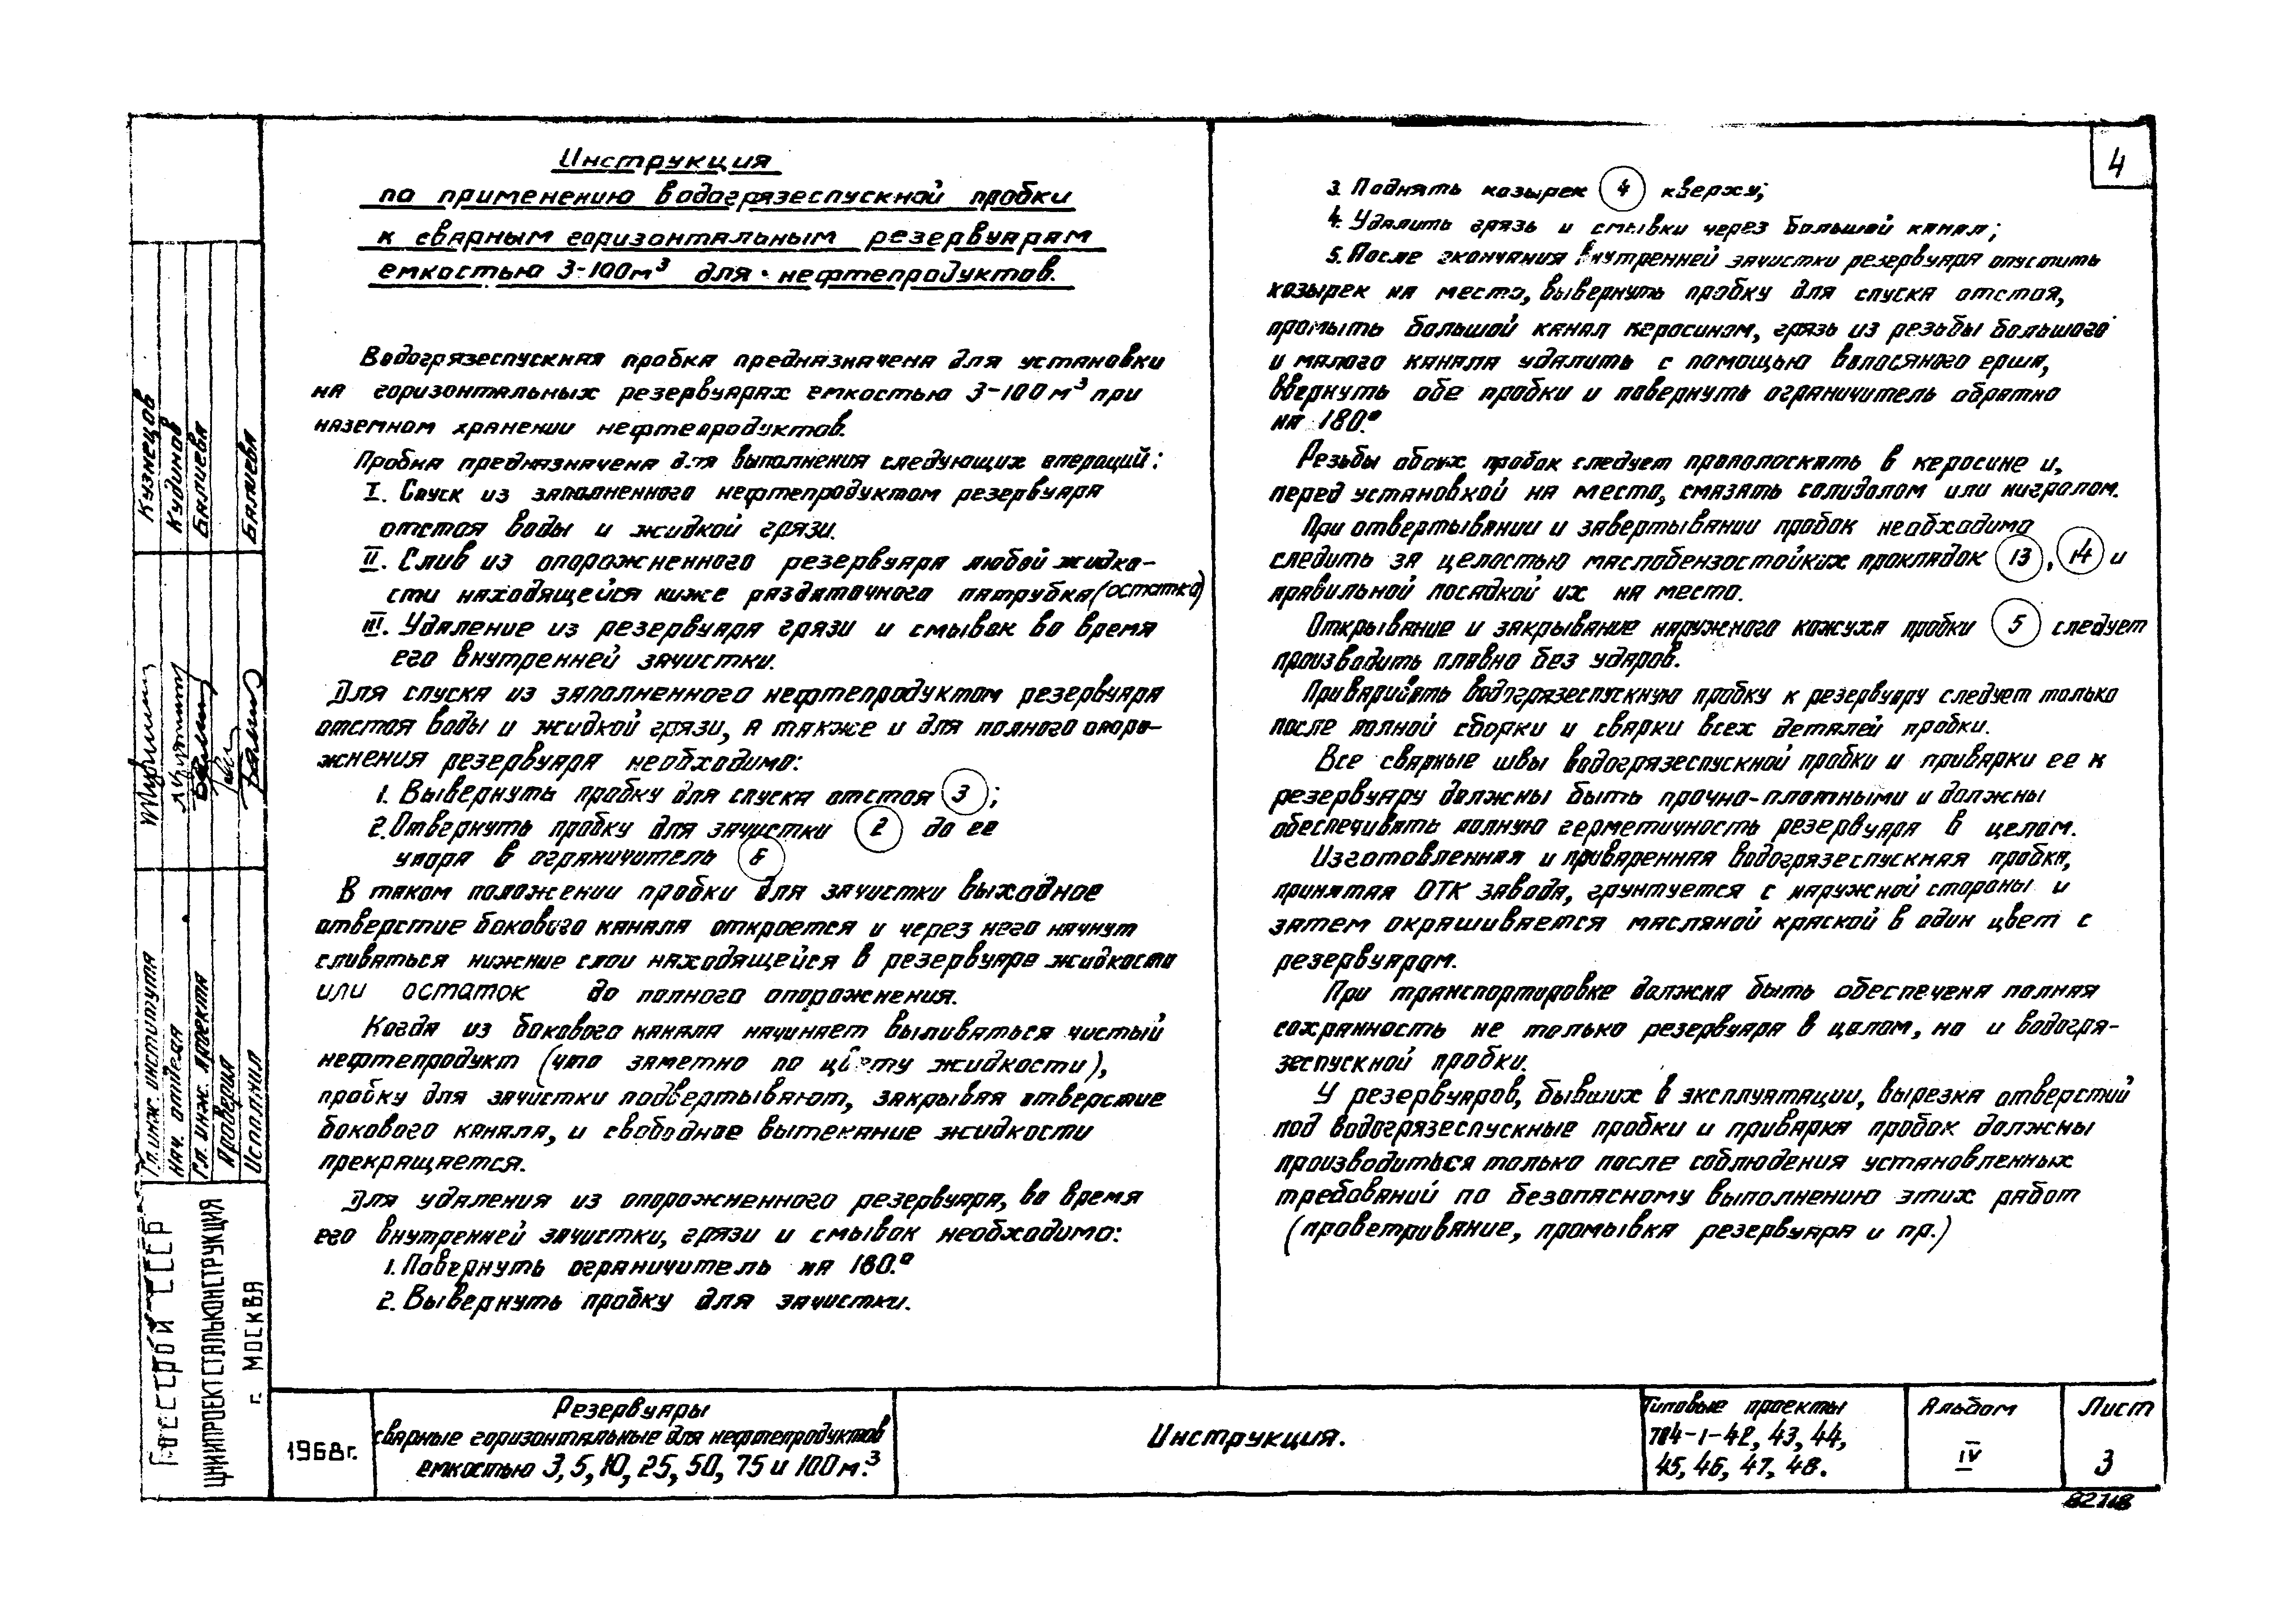 Инструкция
по применению водогрязеспускной пробки
к сварным горизонтальным резервуарам
емкостью 3-100м³ для нефтепродуктов.
Водогрязеспускная пробка предназначена для установки
на горизонтальных резервуарах емкостью 3-100м³ при
наземном хранении нефтепродуктов.
Пробка предназначена для выполнения следующих операций:
I. Спуск из заполненного нефтепродуктом резервуара
отстоя воды и жидкой грязи.
II. Слив из опорожненного резервуара любой жидко-
сти находящейся ниже раздаточного патрубка (остатка)
III. Удаление из резервуара грязи и смывок во время
его внутренней зачистки.
Для спуска из заполненного нефтепродуктом резервуара
отстоя воды и жидкой грязи, а также и для полного опоро-
жнения резервуара необходимо:
1. Вывернуть пробку для спуска отстоя 3;
2. Отвернуть пробку для зачистки 2 до ее
упора в ограничитель 6
В таком положении пробки для зачистки выходное
отверстие бокового канала откроется и через него начнут
сливаться нижние слои находящейся в резервуаре жидкости
или остаток до полного опорожнения.
Когда из бокового канала начинает выливаться чистый
нефтепродукт (что заметно по цвету жидкости),
пробку для зачистки подвертывают, закрывая отверстие
бокового канала, и свободное вытекание жидкости
прекращается.
Для удаления из опорожненного резервуара, во время
его внутренней зачистки, грязи и смывок необходимо:
1. Повернуть ограничитель на 180.°
2. Вывернуть пробку для зачистки.
4
3. Поднять козырек 4 кверху;
4. Удалить грязь и смывки через большой канал;
5. После окончания внутренней зачистки резервуара опустить
козырек на место, вывернуть пробку для спуска отстоя,
промыть большой канал керосином, грязь из резьбы большого
и малого канала удалить с помощью волосяного ерша,
ввернуть обе пробки и повернуть ограничитель обратно
на 180.°
Резьбы обоих пробок следует прополоскать в керосине и,
перед установкой на место, смазать солидолом или нигролом.
При отвертывании и завертывании пробок необходимо
следить за целостью маслобензостойких прокладок 13, 14 и
правильной посадкой их на место.
Открывание и закрывание наружного кожуха пробки 5 следует
производить плавно без ударов.
Приваривать водогрязеспускную пробку к резервуару следует только
после полной сборки и сварки всех деталей пробки.
Все сварные швы водогрязеспускной пробки и приварки ее к
резервуару должны быть прочно-плотными и должны
обеспечивать полную герметичность резервуара в целом.
Изготовленная и приваренная водогрязеспускная пробка,
принятая ОТК завода, грунтуется с наружной стороны и
затем окрашивается масляной краской в один цвет с
резервуаром.
При транспортировке должна быть обеспечена полная
сохранность не только резервуара в целом, но и водогря-
зеспускной пробки.
У резервуаров, бывших в эксплуатации, вырезка отверстий
под водогрязеспускные пробки и приварка пробок должны
производиться только после соблюдения установленных
требований по безопасному выполнению этих работ
(проветривание, промывка резервуара и пр.)
Госстрой СССР
ЦНИИПРОЕКТСТАЛЬКОНСТРУКЦИЯ
г. МОСКВА
Гл. инж. института
Нач. отдела
Гл. инж. проекта
Проверил
Исполнил
Кузнецов
Кудинов
Балиева
Балиева
1968г.
Резервуары
сварные горизонтальные для нефтепродуктов
емкостью 3, 5, 10, 25, 50, 75 и 100м.³
Инструкция.
Типовые проекты
704-1-42, 43, 44,
45, 46, 47, 48.
Альбом
IV
Лист
3